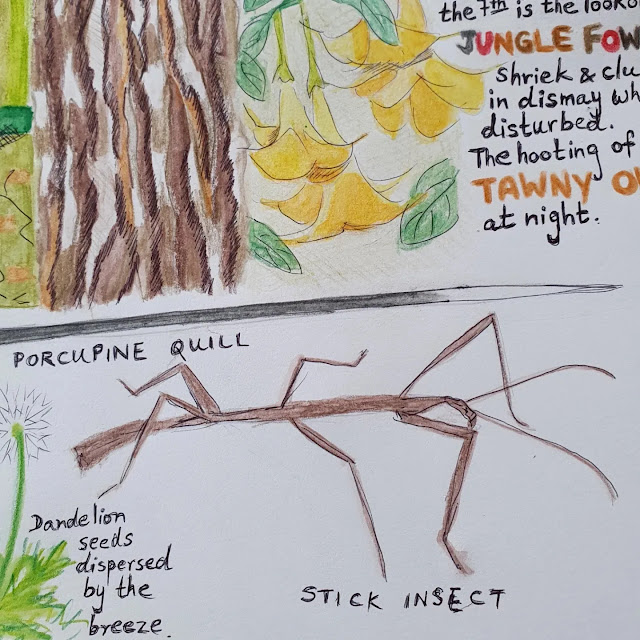 the 7th is the
JUNGLE
Shriek &
in dismay
disturbed.
The hooting of
TAWNY
at night.
PORCUPINE QUILL
Dandelion
seeds
dispersed
by the
breeze.
STICK INSECT